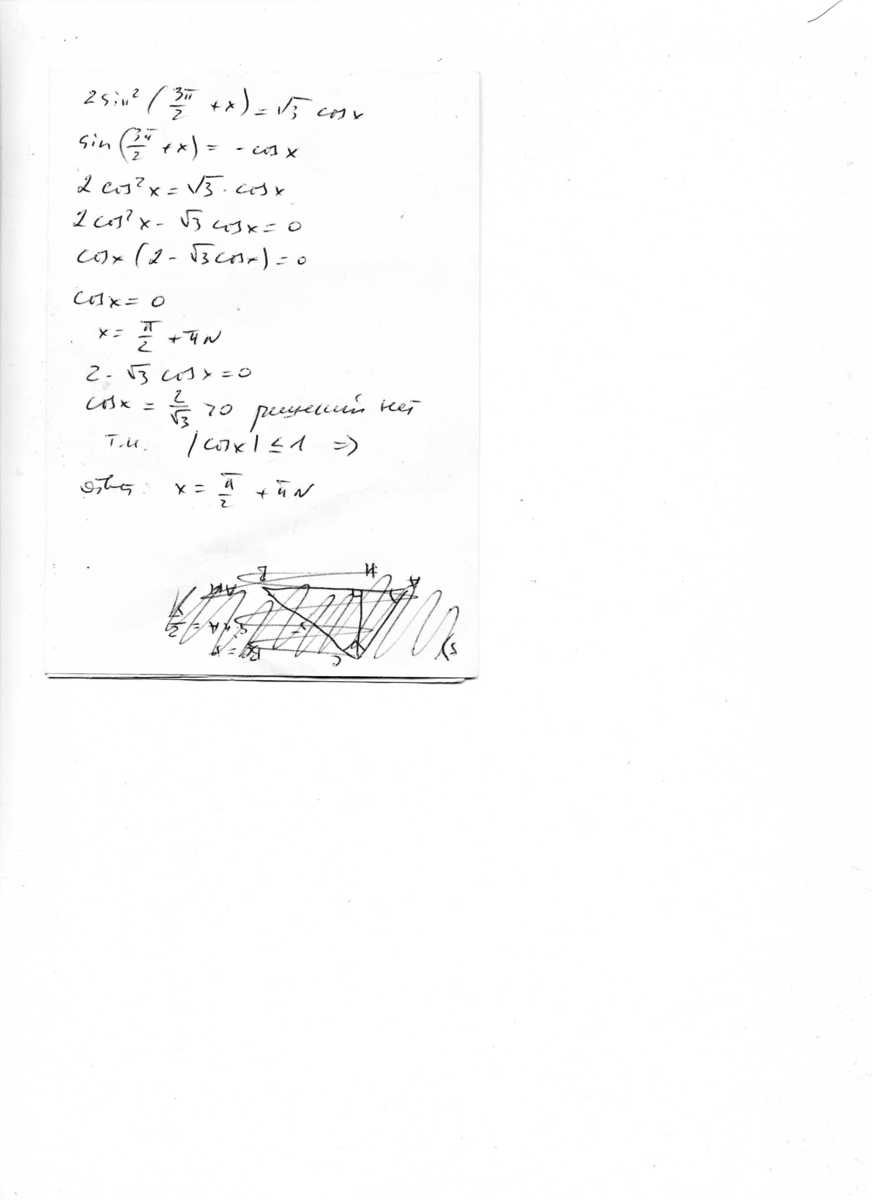 2 sin² (3π/2 + x) = √3 cos x
sin (3π/2 + x) = - cos x
2 cos² x = √3 · cos x
2 cos² x - √3 cos x = 0
cos x (2 - √3 cos x) = 0
cos x = 0
x = π/2 + πN
2 - √3 cos x = 0
cos x = 2/√3 > 0 решений нет
т.и. |cos x| ≤ 1 =>
ответ: x = π/2 + πN